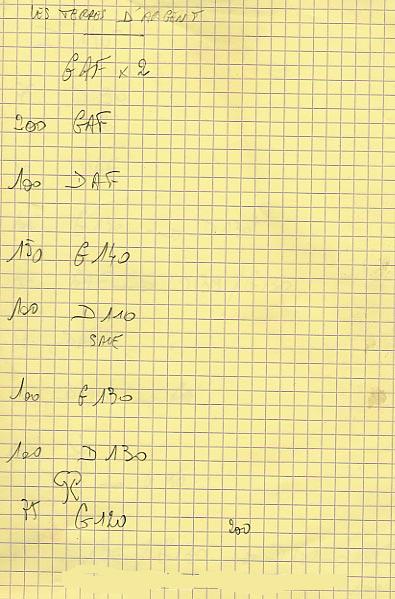 LES TERRES D'ARGENT
GAF x 2
200 GAF
100 DAF
150 G140
100 D110
SALE
100 G130
100 D130
75 G120 200